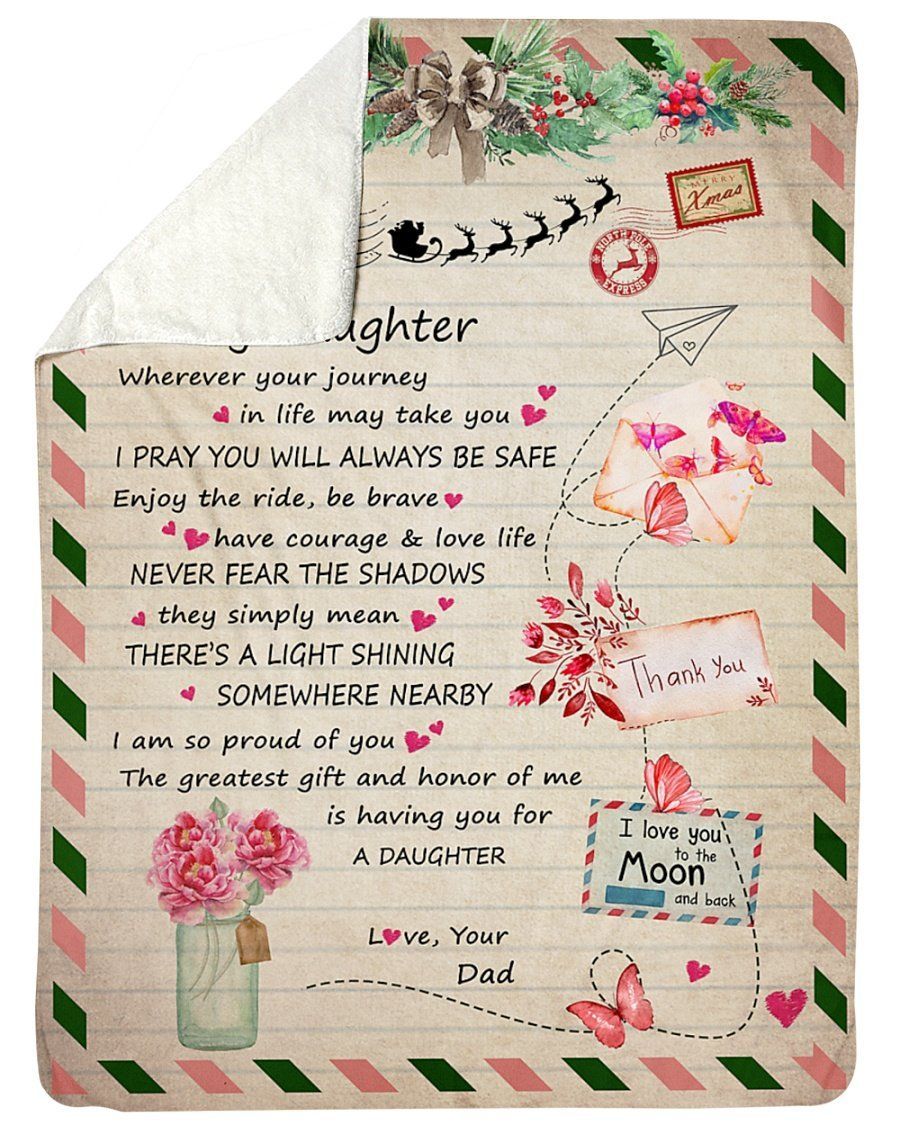 MERRY
Xmas
NORTH POLE
EXPRESS
Wherever your journey
in life may take you
I PRAY YOU WILL ALWAYS BE SAFE
Enjoy the ride, be brave
have courage & love life
NEVER FEAR THE SHADOWS
they simply mean
THERE'S A LIGHT SHINING
SOMEWHERE NEARBY
I am so proud of you
The greatest gift and honor of me
is having you for
A DAUGHTER
Love, Your
Dad
Thank You
I love you
to the
Moon
and back